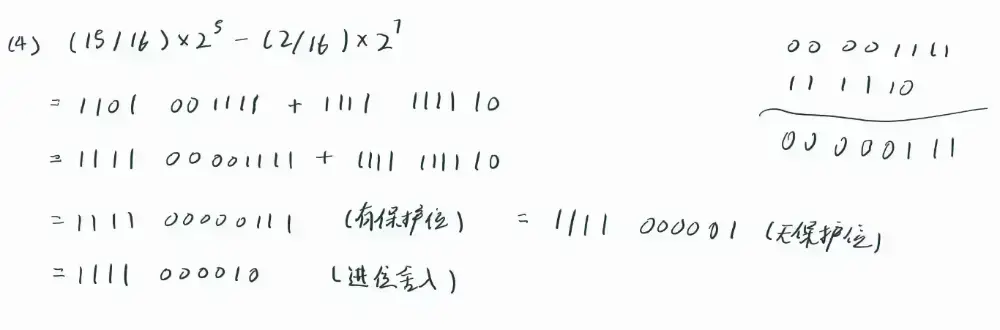 (4) (15/16)×2^5 - (2/16)×2^7
= 1101 001111 + 1111 111110
= 1111 00001111 + 1111 111110
= 1111 00000111 (有保护位) = 1111 000001 (无保护位)
= 1111 000010 (进位舍入)
00 001111
111110
00 000111